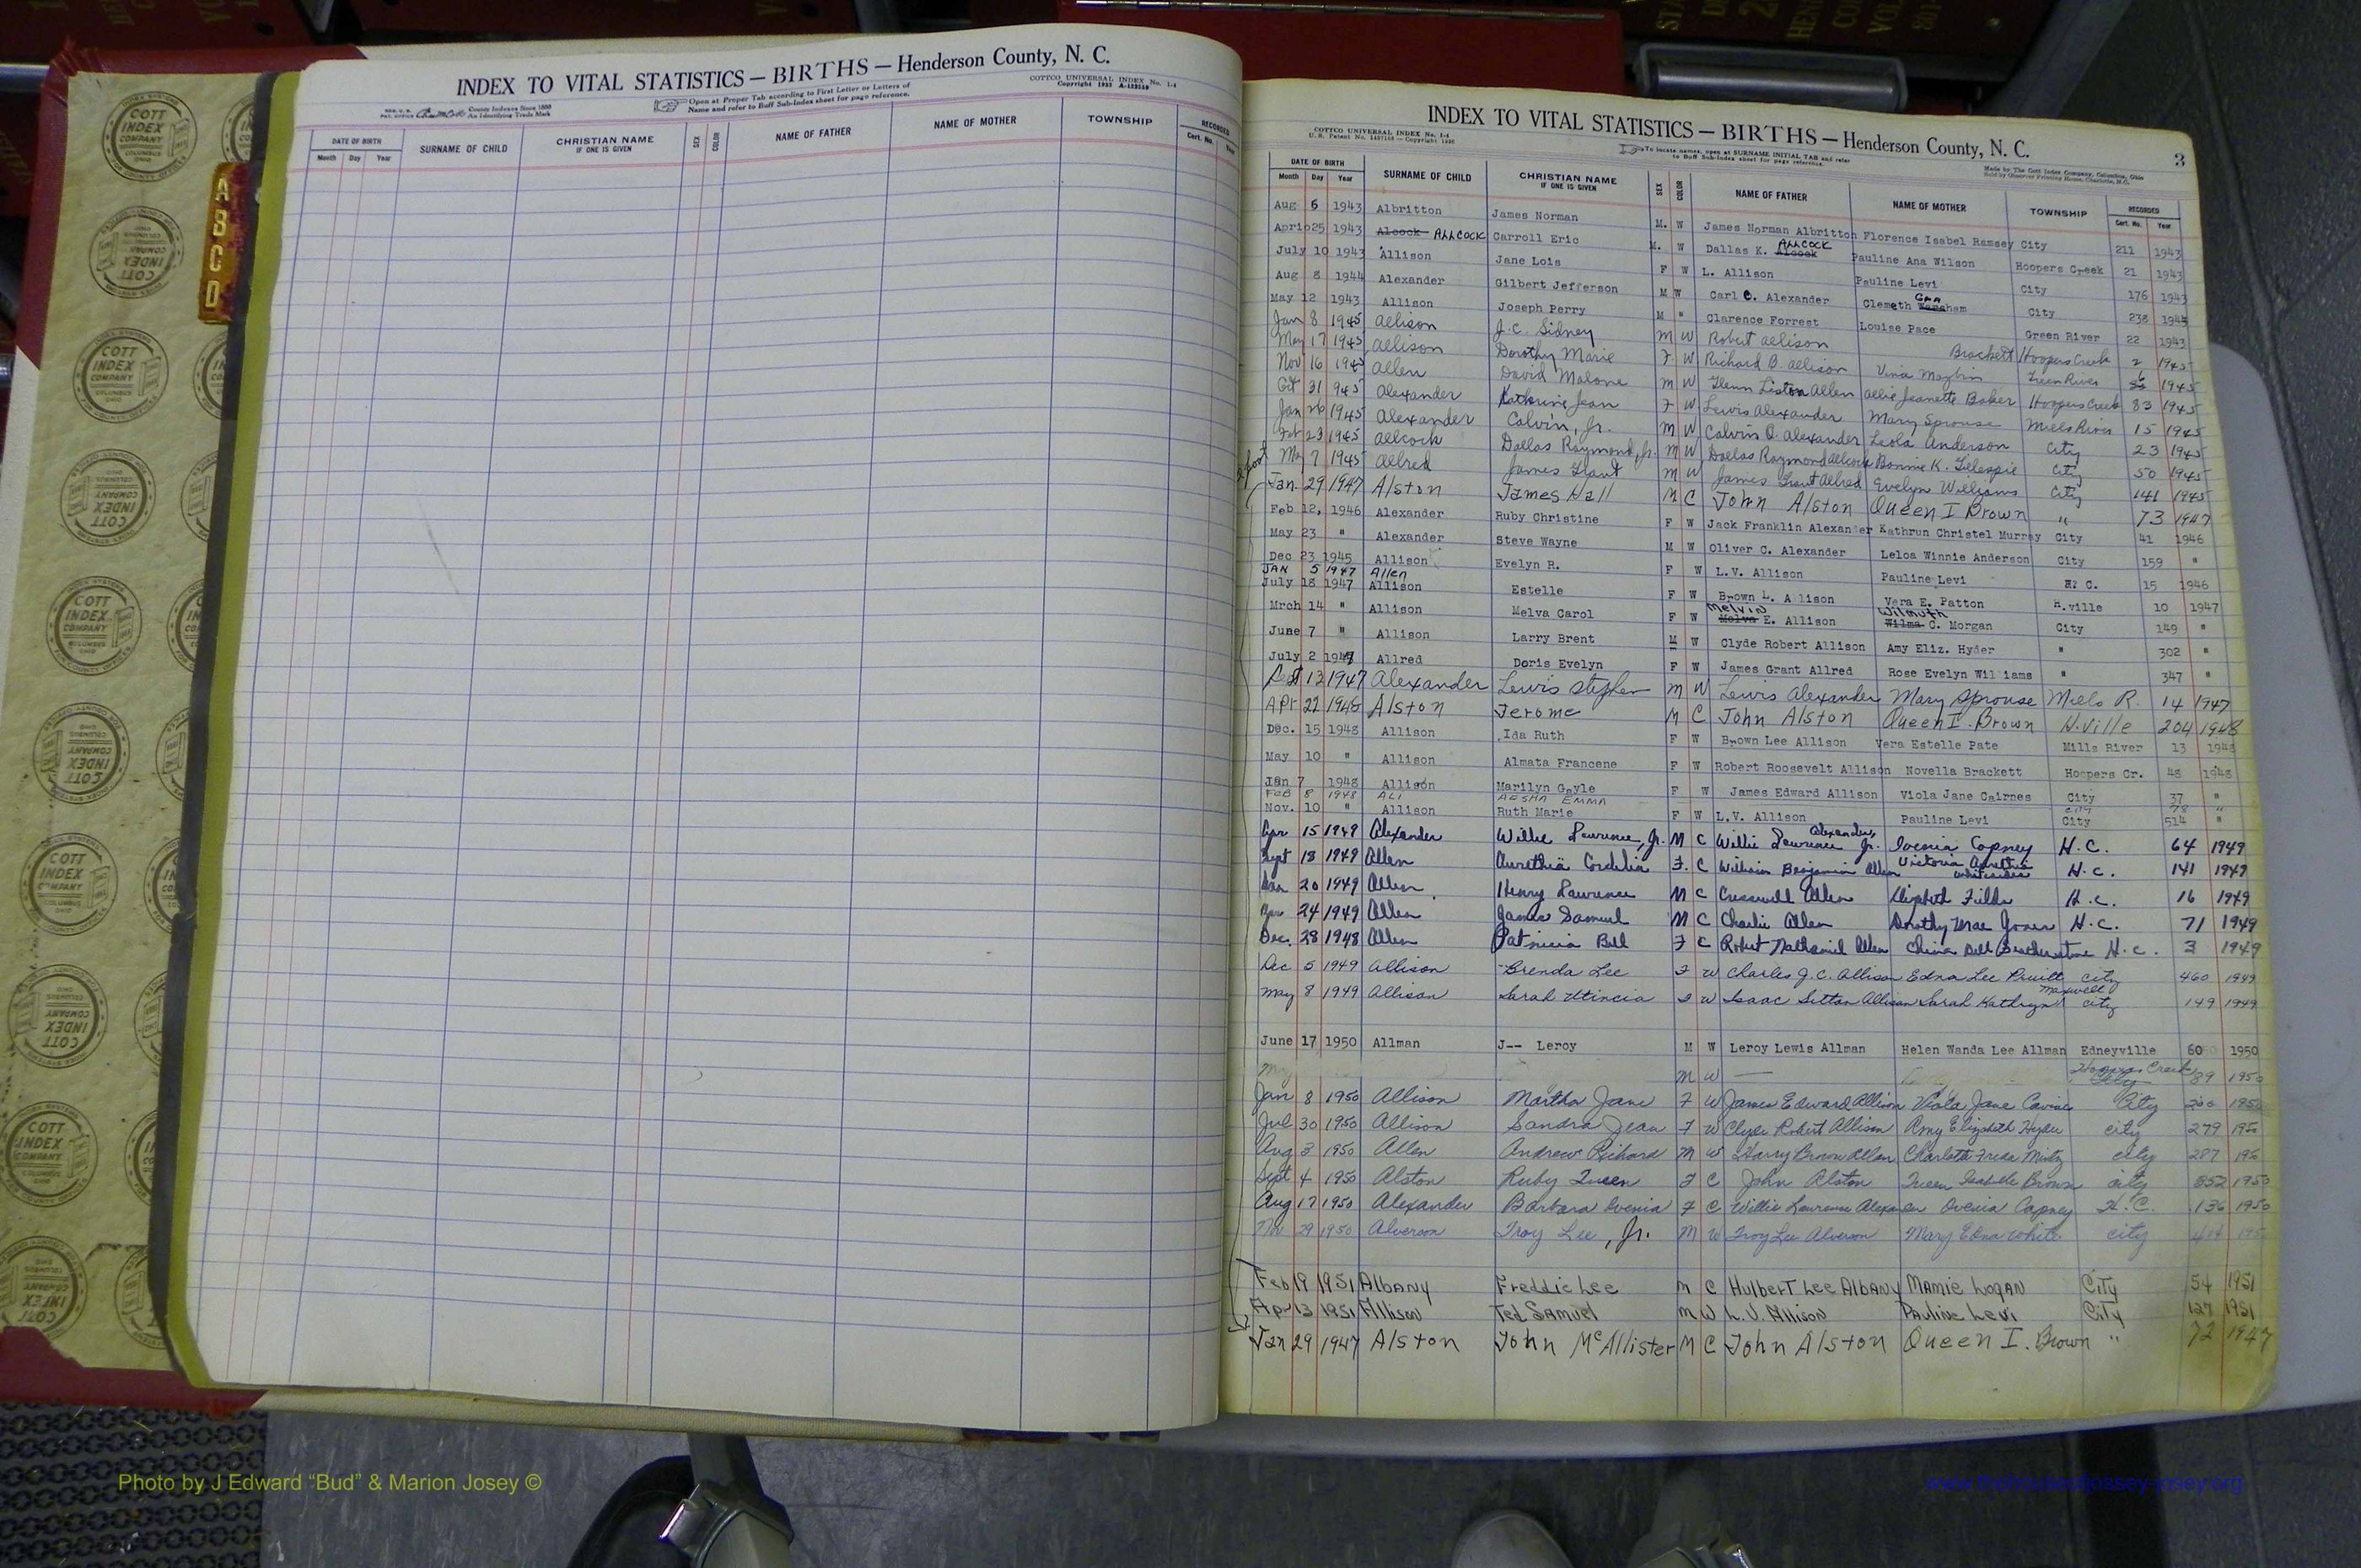 INDEX TO VITAL STATISTICS — BIRTHS — Henderson County, N. C.
County Indexes Since 1888
An Identifying Trade Mark
Open at Proper Tab according to First Letter or Letters of
Name and refer to Buff Sub-Index sheet for page reference.
COTTCO UNIVERSAL INDEX No. 1-4
DATE OF BIRTH SURNAME OF CHILD CHRISTIAN NAME IF ONE IS GIVEN SEX COLOR NAME OF FATHER NAME OF MOTHER TOWNSHIP RECORDED
Month Day Year Cert. No. Year
A
B
C
D
COTT INDEX COMPANY COLUMBUS OHIO
INDEX TO VITAL STATISTICS — BIRTHS — Henderson County, N. C.
3
COTTCO UNIVERSAL INDEX No. 1-4
To locate names, open at SURNAME INITIAL TAB and refer
to Buff Sub-Index sheet for page reference.
Made by The Cott Index Company, Columbus, Ohio
Sold by Observer Printing House, Charlotte, N.C.
DATE OF BIRTH SURNAME OF CHILD CHRISTIAN NAME IF ONE IS GIVEN SEX COLOR NAME OF FATHER NAME OF MOTHER TOWNSHIP RECORDED
Month Day Year Cert. No. Year
Aug 6 1943 Albritton James Norman M. W James Norman Albritton Florence Isabel Ramsey City 211 1943
April 25 1943 Alcock ALLCOCK Carroll Eric M. W Dallas K. Alcock ALLCOCK Pauline Ana Wilson Hoopers Creek 21 1943
July 10 1943 Allison Jane Lois F W L. Allison Pauline Levi City 176 1943
Aug 8 1944 Alexander Gilbert Jefferson M W Carl C. Alexander Clemeth City 238 1944
May 12 1943 Allison Joseph Perry M " Clarence Forrest Louise Pace Green River 22 1943
Jan 8 1945 Allison J.C. Sidney M W Robert Allison Brackett Hoopers Creek 2 1945
May 17 1945 Allison Dorothy Marie F W Richard B. Allison Vina Maybin Green River 1945
Nov 16 1945 Allen David Malone M W Glenn Liston Allen Allie Jeanette Baker Hoopers Creek 83 1945
Oct 31 945 Alexander Katherine Jean F W Lewis Alexander Mary Sprouse Mills River 15 1945
Jan 26 1945 Alexander Calvin, Jr. M W Calvin O. Alexander Leola Anderson City 23 1945
Feb 23 1945 Allcock Dallas Raymond, Jr. M W Dallas Raymond Allcock Bonnie K. Gelespie City 50 1945
May 7 1945 Allred James Grant M W James Grant Allred Evelyn Williams City 141 1945
Jan. 29 1947 Alston James Hall M C John Alston Queen I Brown " 73 1947
Feb 12, 1946 Alexander Ruby Christine F W Jack Franklin Alexander Kathrun Christel Murray City 41 1946
May 23 " Alexander Steve Wayne M W Oliver C. Alexander Leloa Winnie Anderson City 159 "
Dec 23 1945 Allison Evelyn R. F W L.V. Allison Pauline Levi H. C. 15 1946
JAN 5 1947 Allen
July 18 1947 Allison Estelle F W Brown L. Allison Vera E. Patton H.ville 10 1947
Mrch 14 " Allison Melva Carol F W Melva Melvin E. Allison Wilma Wilmuth C. Morgan City 149 "
June 7 " Allison Larry Brent M W Clyde Robert Allison Amy Eliz. Hyder " 302 "
July 2 1947 Allred Doris Evelyn F W James Grant Allred Rose Evelyn Williams " 347 "
Sept 13 1947 Alexander Lewis Stephen M W Lewis Alexander Mary Sprouse Mills R. 14 1947
Apr 22 1948 Alston Jerome M C John Alston Queen I. Brown H.Ville 204 1948
Dec. 15 1948 Allison Ida Ruth F W Brown Lee Allison Vera Estelle Pate Mills River 13 1948
May 10 " Allison Almata Francene F W Robert Roosevelt Allison Novella Brackett Hoopers Cr. 48 1948
Jan 7 1948 Allison Marilyn Gayle F W James Edward Allison Viola Jane Cairnes City 37 "
FEB 8 1948 ALI AESHA EMMA City 78 "
Nov. 10 " Allison Ruth Marie F W L.V. Allison Pauline Levi City 514 "
Apr 15 1949 Alexander Willie Lawrence, Jr. M C Willie Lawrence Alexander Jr. Ovenia Copney H.C. 64 1949
Sept 18 1949 Allen Aurethia Cordelia F. C William Benjamin Allen Victoria Whiteside H.C. 141 1949
Jan 20 1949 Allen Henry Lawrence M C Cresswell Allen Elizabeth Fields H.C. 16 1949
Apr 24 1949 Allen James Samuel M C Charlie Allen Dorothy Mae Jones H.C. 71 1949
Dec. 28 1948 Allen Patricia Bell F C Robert Nathaniel Allen China Dell H.C. 3 1949
Dec 5 1949 Allison Brenda Lee F W Charles J.C. Allison Edna Lee Pruitt City 460 1949
May 8 1949 Allison Sarah F W Isaac Sitton Allison Sarah Kathryn Maxwell City 149 1949
June 17 1950 Allman J-- Leroy M W Leroy Lewis Allman Helen Wanda Lee Allman Edneyville 60 1950
May M W — Hoopers Creek City 89 1950
Jan 8 1950 Allison Martha Jane F W James Edward Allison Viola Jane Cairnes City 1950
Jul 30 1950 Allison Sandra Jean F W Clyde Robert Allison Amy Elizabeth Hyder City 279 1950
Aug 3 1950 Allen Andrew Richard M W Harry Brown Allen Charlotte Freda Mintz City 287 195
Sept 4 1950 Alston Ruby Queen F C John Alston Queen Isabelle Brown City 352 1950
Aug 17 1950 Alexander Barbara Ovenia F C Willie Lawrence Alexander Ovenia Copney H.C. 136 1950
Nov 29 1950 Alverson Troy Lee, Jr. M W Troy Lee Alverson Mary Edna White City 1950
Feb 19 1951 Albany Freddie Lee M C Hulbert Lee Albany Mamie Logan City 54 1951
Apr 13 1951 Allison Ted Samuel M W L.V. Allison Pauline Levi City 127 1951
Jan 29 1947 Alston John McAllister M C John Alston Queen I. Brown " 72 1947
Photo by J Edward “Bud” & Marion Josey ©
www.thehouseofjossey-josey.org